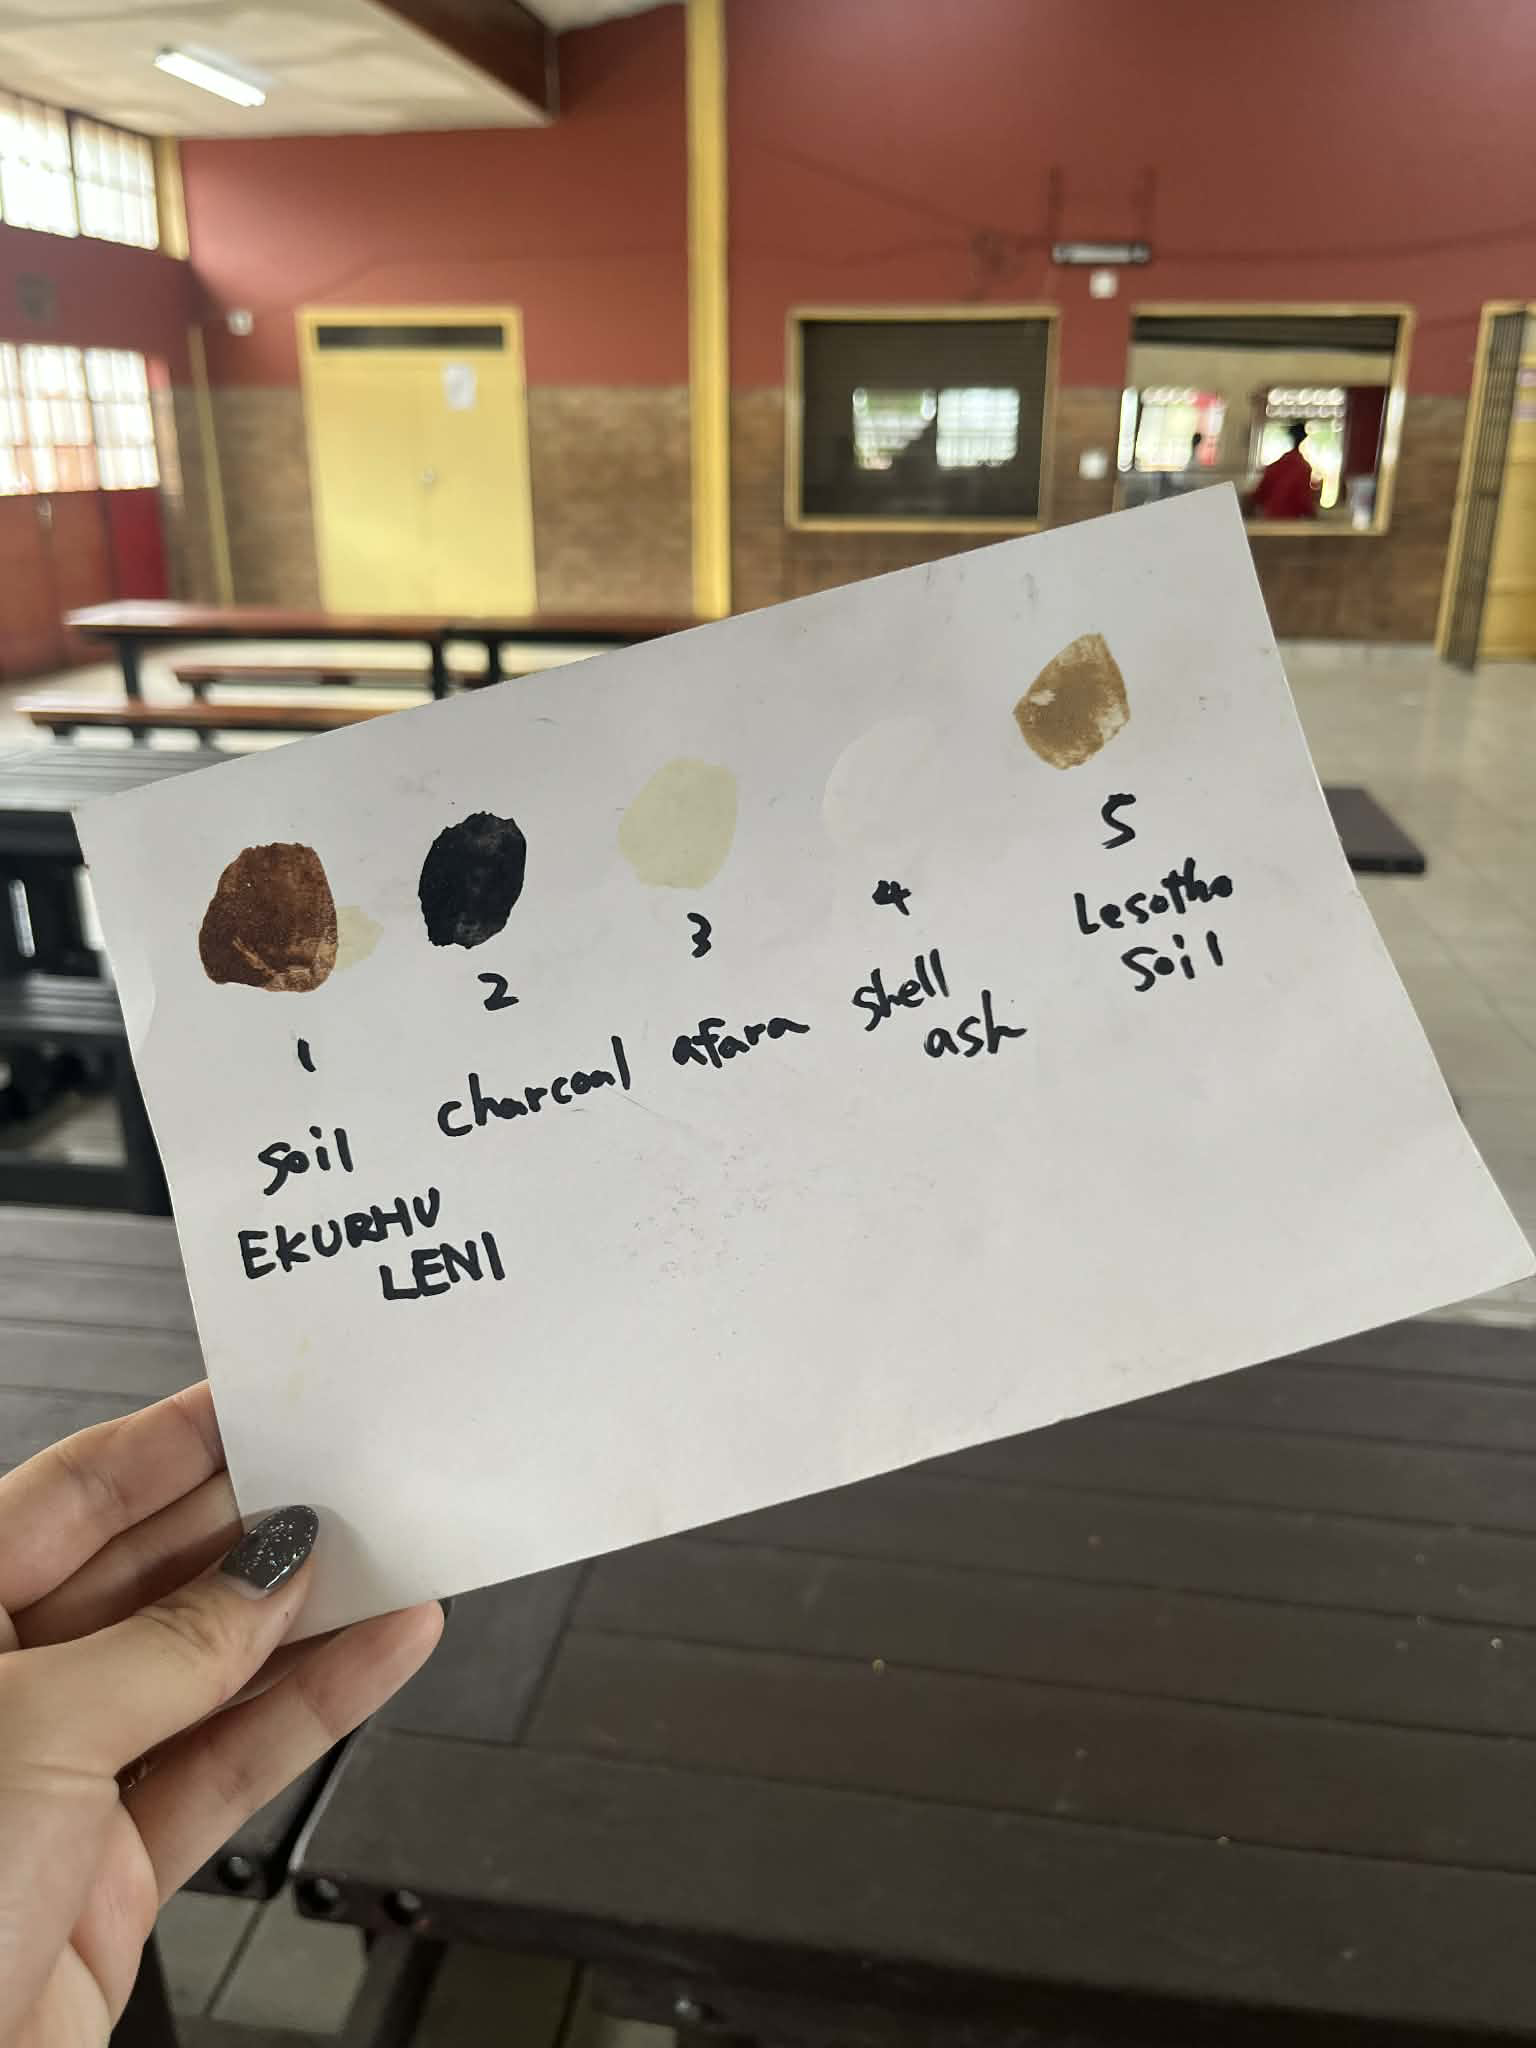 1
2
3
4
5
soil
EKURHU
LENI
charcoal
afara
shell
ash
Lesotho
soil